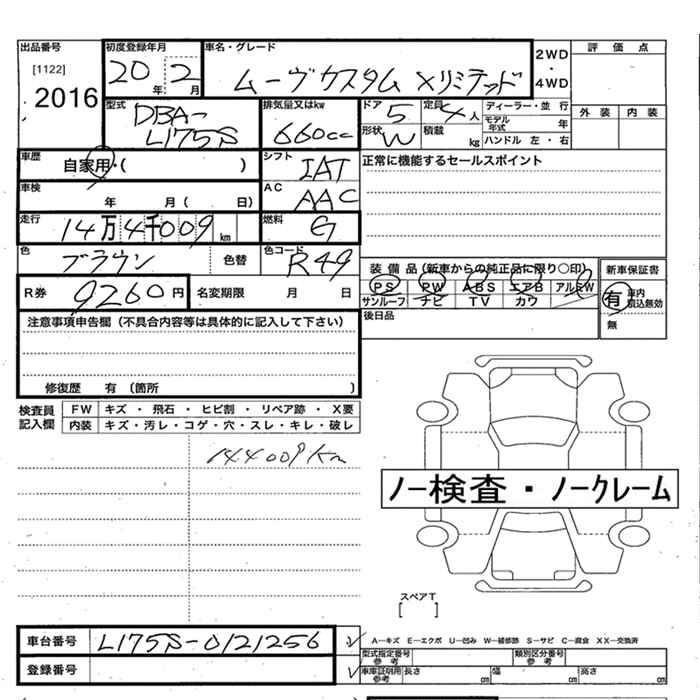 出品番号 [1122] 2016
初度登録年月 20年 2月
車名・グレード ムーヴカスタム Xリミテッド
2WD・4WD
評価点
外装 内装
型式 DBA-L175S
排気量又はkw 660cc
ドア 5
定員 4人
形状 W
積載 kg
ディーラー・並行
モデル年式 年
ハンドル 左・右
車歴 自家用・( )
シフト IAT
正常に機能するセールスポイント
車検 年 月( 日)
AC AAC
走行 14万4千009km
燃料 G
色 ブラウン 色替
色コード R49
R券 9260円 名変期限 月 日
装備品(新車からの純正品に限り○印)
PS PW ABS エアB アルミW
サンルーフ ナビ TV カワ
後日品
新車保証書
有 車内積込無効
無
注意事項申告欄(不具合内容等は具体的に記入して下さい)
修復歴 有(箇所 )
検査員記入欄
FW キズ・飛石・ヒビ割・リペア跡・X要
内装 キズ・汚レ・コゲ・穴・スレ・キレ・破レ
144009km
ノー検査・ノークレーム
スペアT
[ ]
車台番号 L175S-0121256
登録番号
A―キズ E―エクボ U―凹み W―補修跡 S―サビ C―腐食 XX―交換済
型式指定番号 参考
類別区分番号 参考
車庫証明用 参考 長さ cm 幅 cm 高さ cm